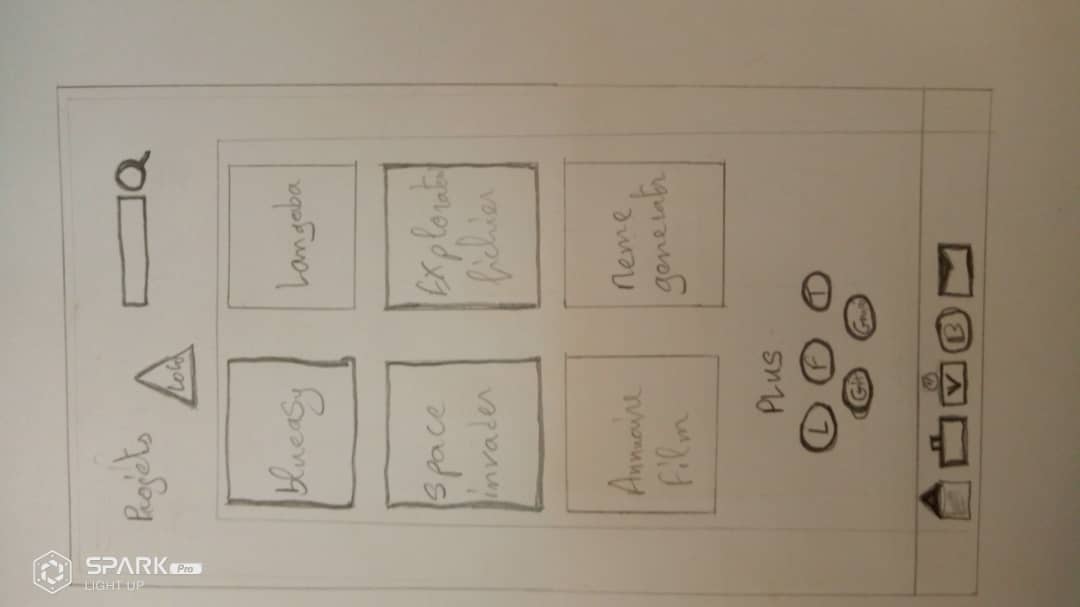 SPARK Pro
LIGHT UP
Projets
LOGO
blueasy
Langaba
space
invader
Explorateur
fichier
Annuaire
Film
meme
generatr
PLUS
L F T
Git
B